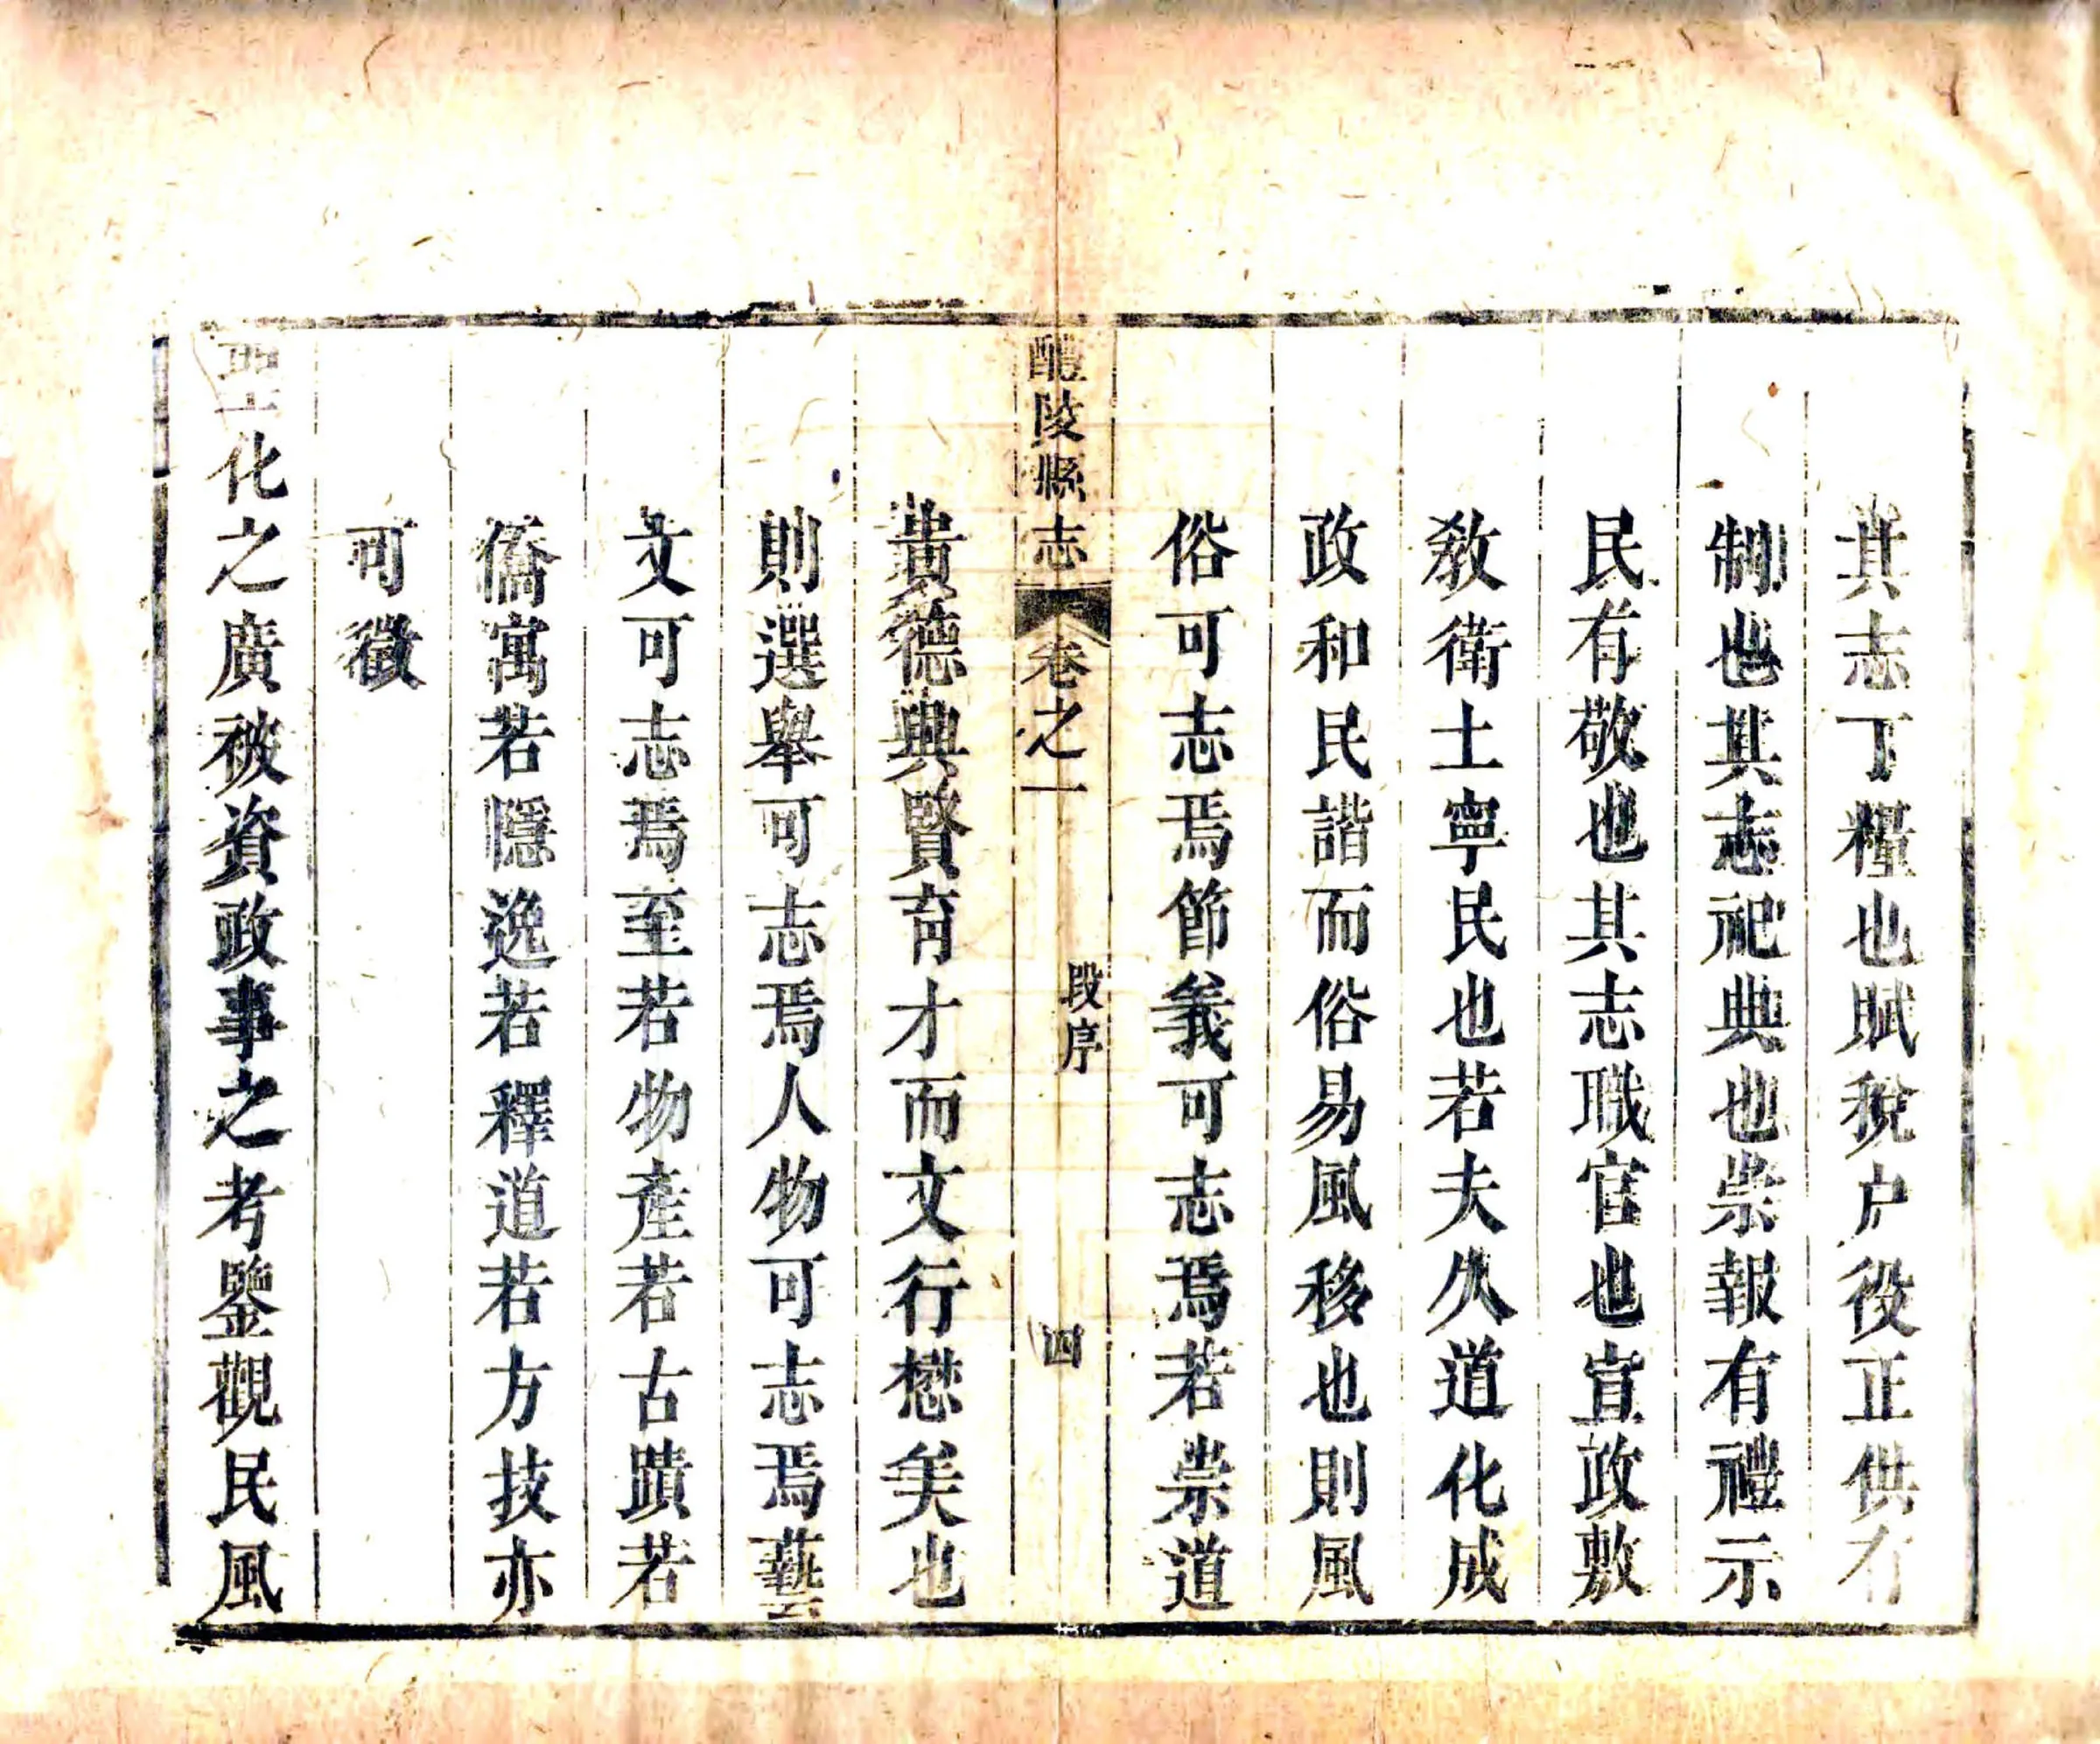 其志丁糧也賦稅户役正供有
制也其志祀典也崇報有禮示
民有敬也其志職官也宣政敷
敎衛土寧民也若夫久道化成
政和民諧而俗易風移也則風
俗可志焉節義可志焉若崇道
醴陵縣志 卷之一 段序 四
貴德興賢育才而文行懋美也
則選舉可志焉人物可志焉藝
文可志焉至若物產若古蹟若
僑寓若隱逸若釋道若方技亦
可徵
聖化之廣被資政事之考鑒觀民風